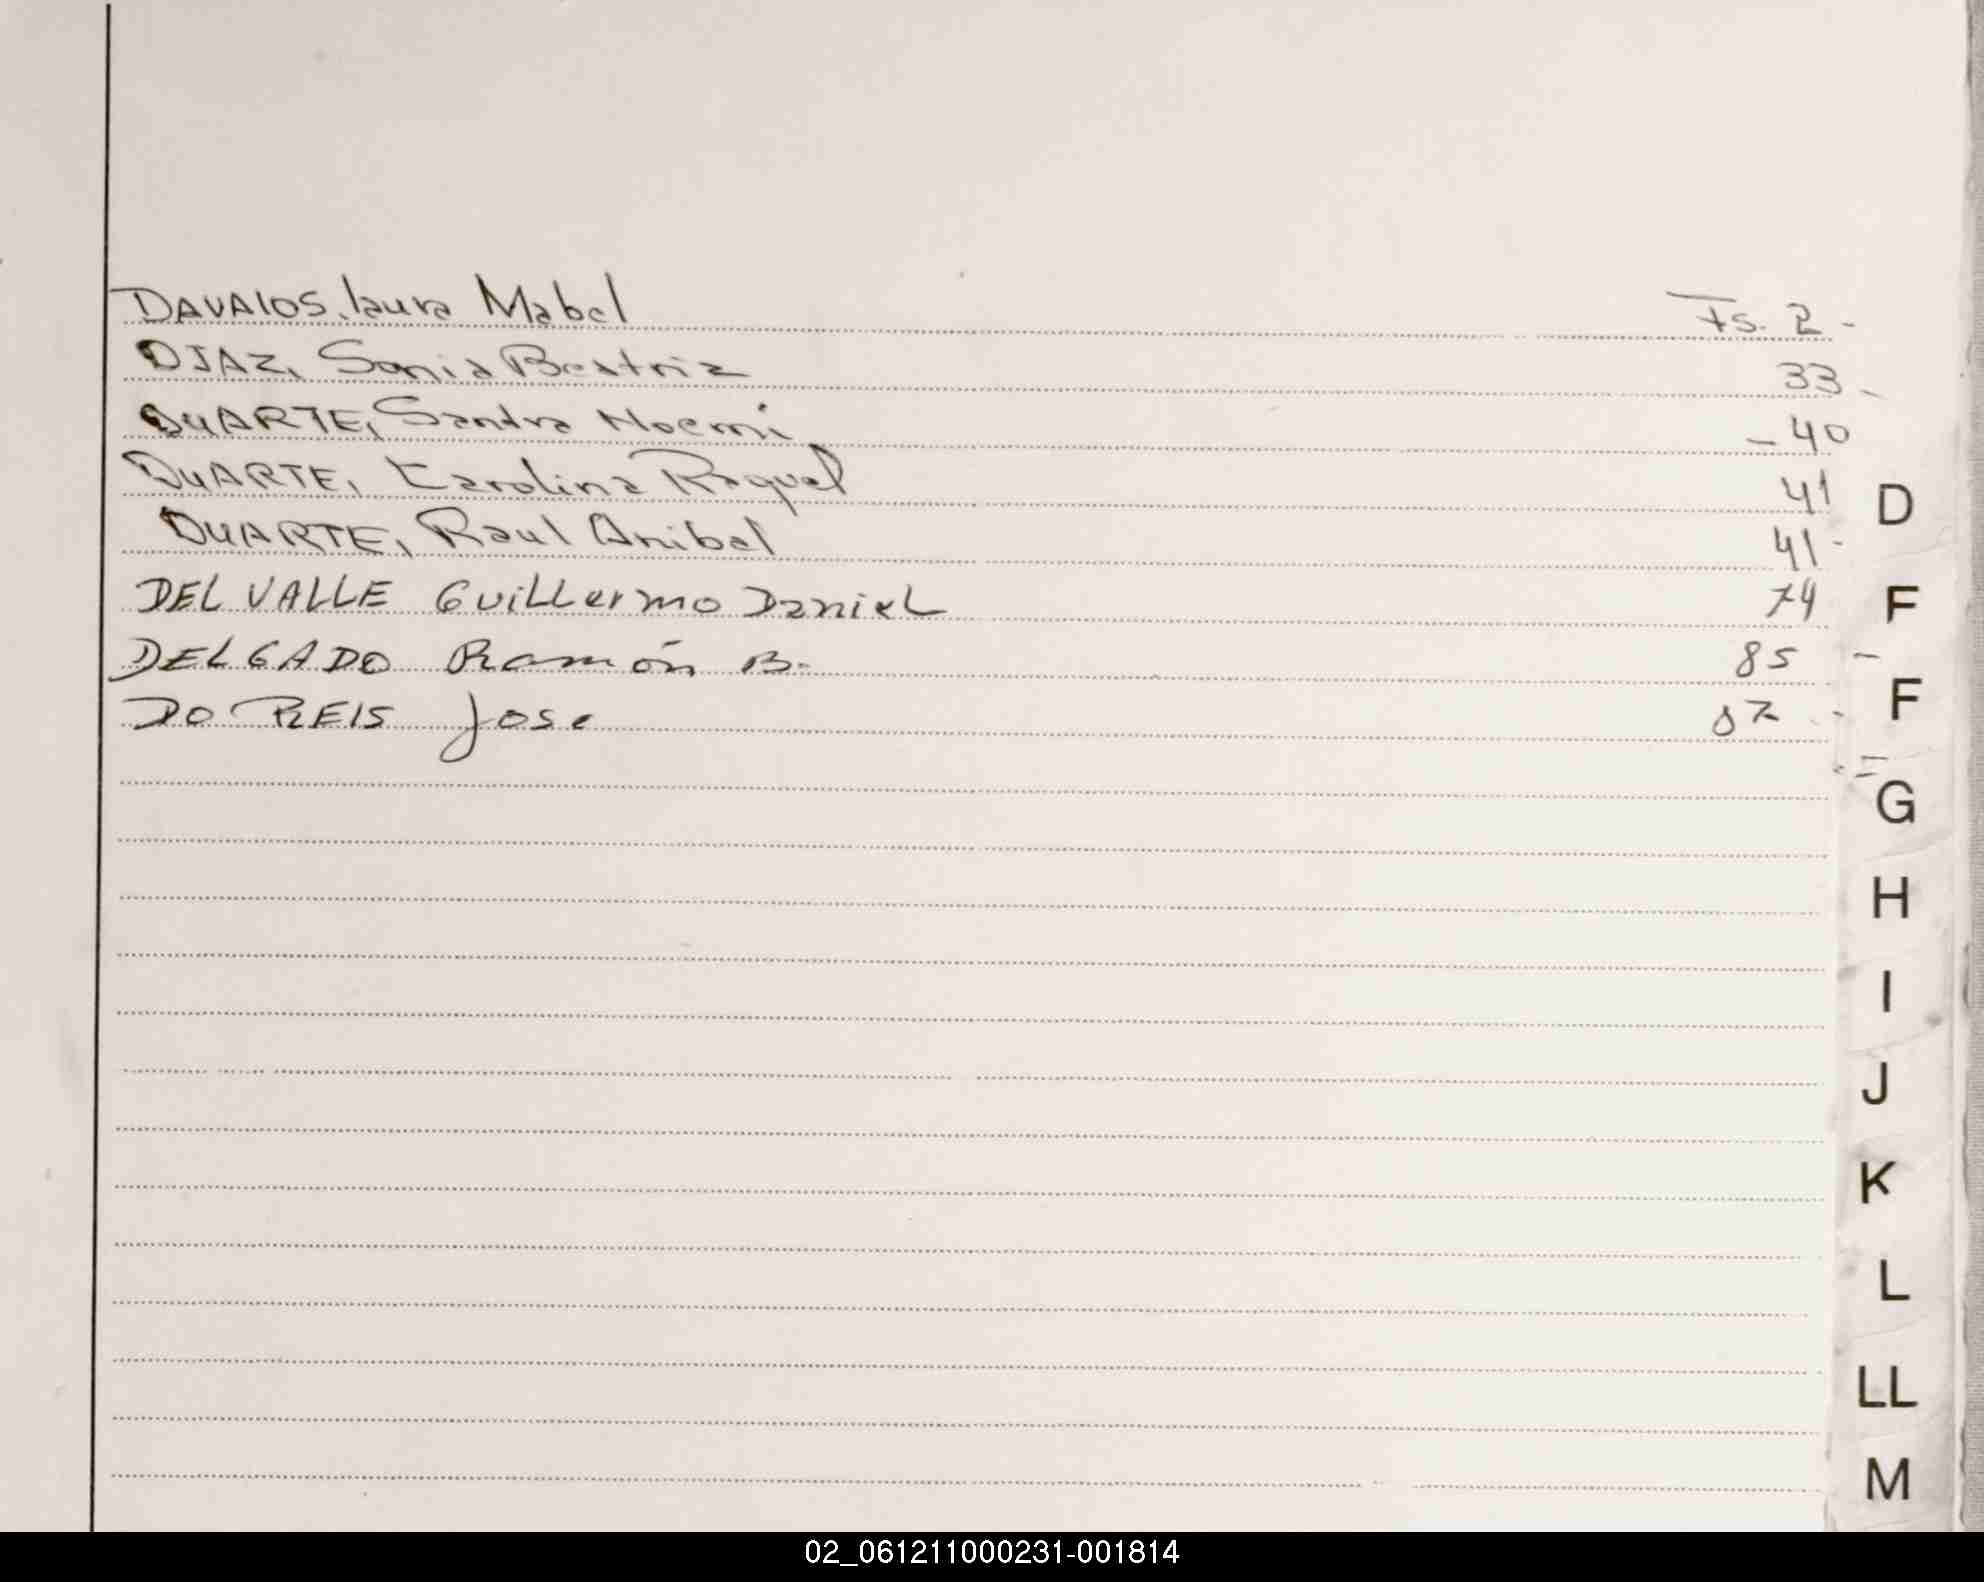 DAVALOS, laura Mabel Fs. 2 -
DIAZ, Sonia Beatriz 33 -
DUARTE, Sandra Noemi - 40
DUARTE, Carolina Raquel 41
D
DUARTE, Raul Anibal 41 -
DEL VALLE Guillermo Daniel 74
F
DELGADO Ramón B. 85 -
F
DO REIS Jose 87 -
G
H
I
J
K
L
LL
M
02_061211000231-001814